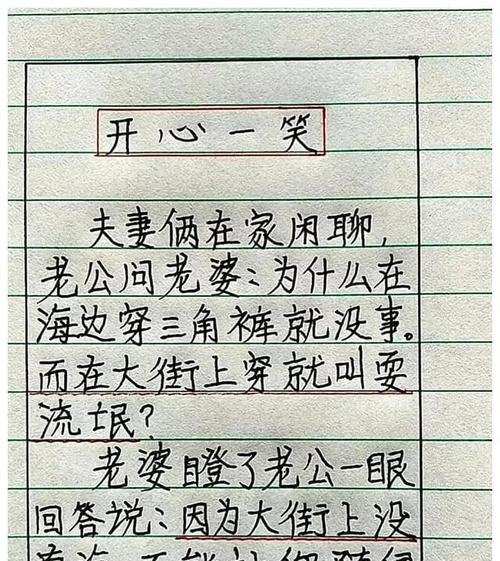 开心一笑
夫妻俩在家闲聊,
老公问老婆:为什么在
海边穿三角裤就没事。
而在大街上穿就叫耍
流氓?
老婆瞪了老公一眼
回答说:因为大街上没